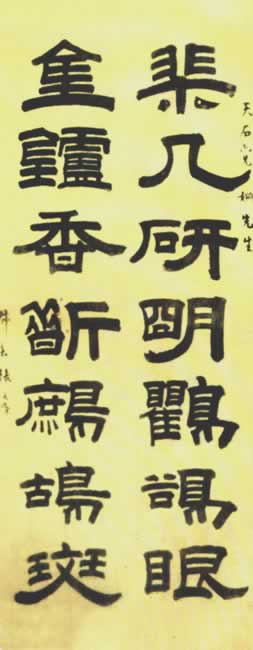 天石六兄姻先生
棐几研朙鸜鵒眼
金鑪香斮鷓鴣斑